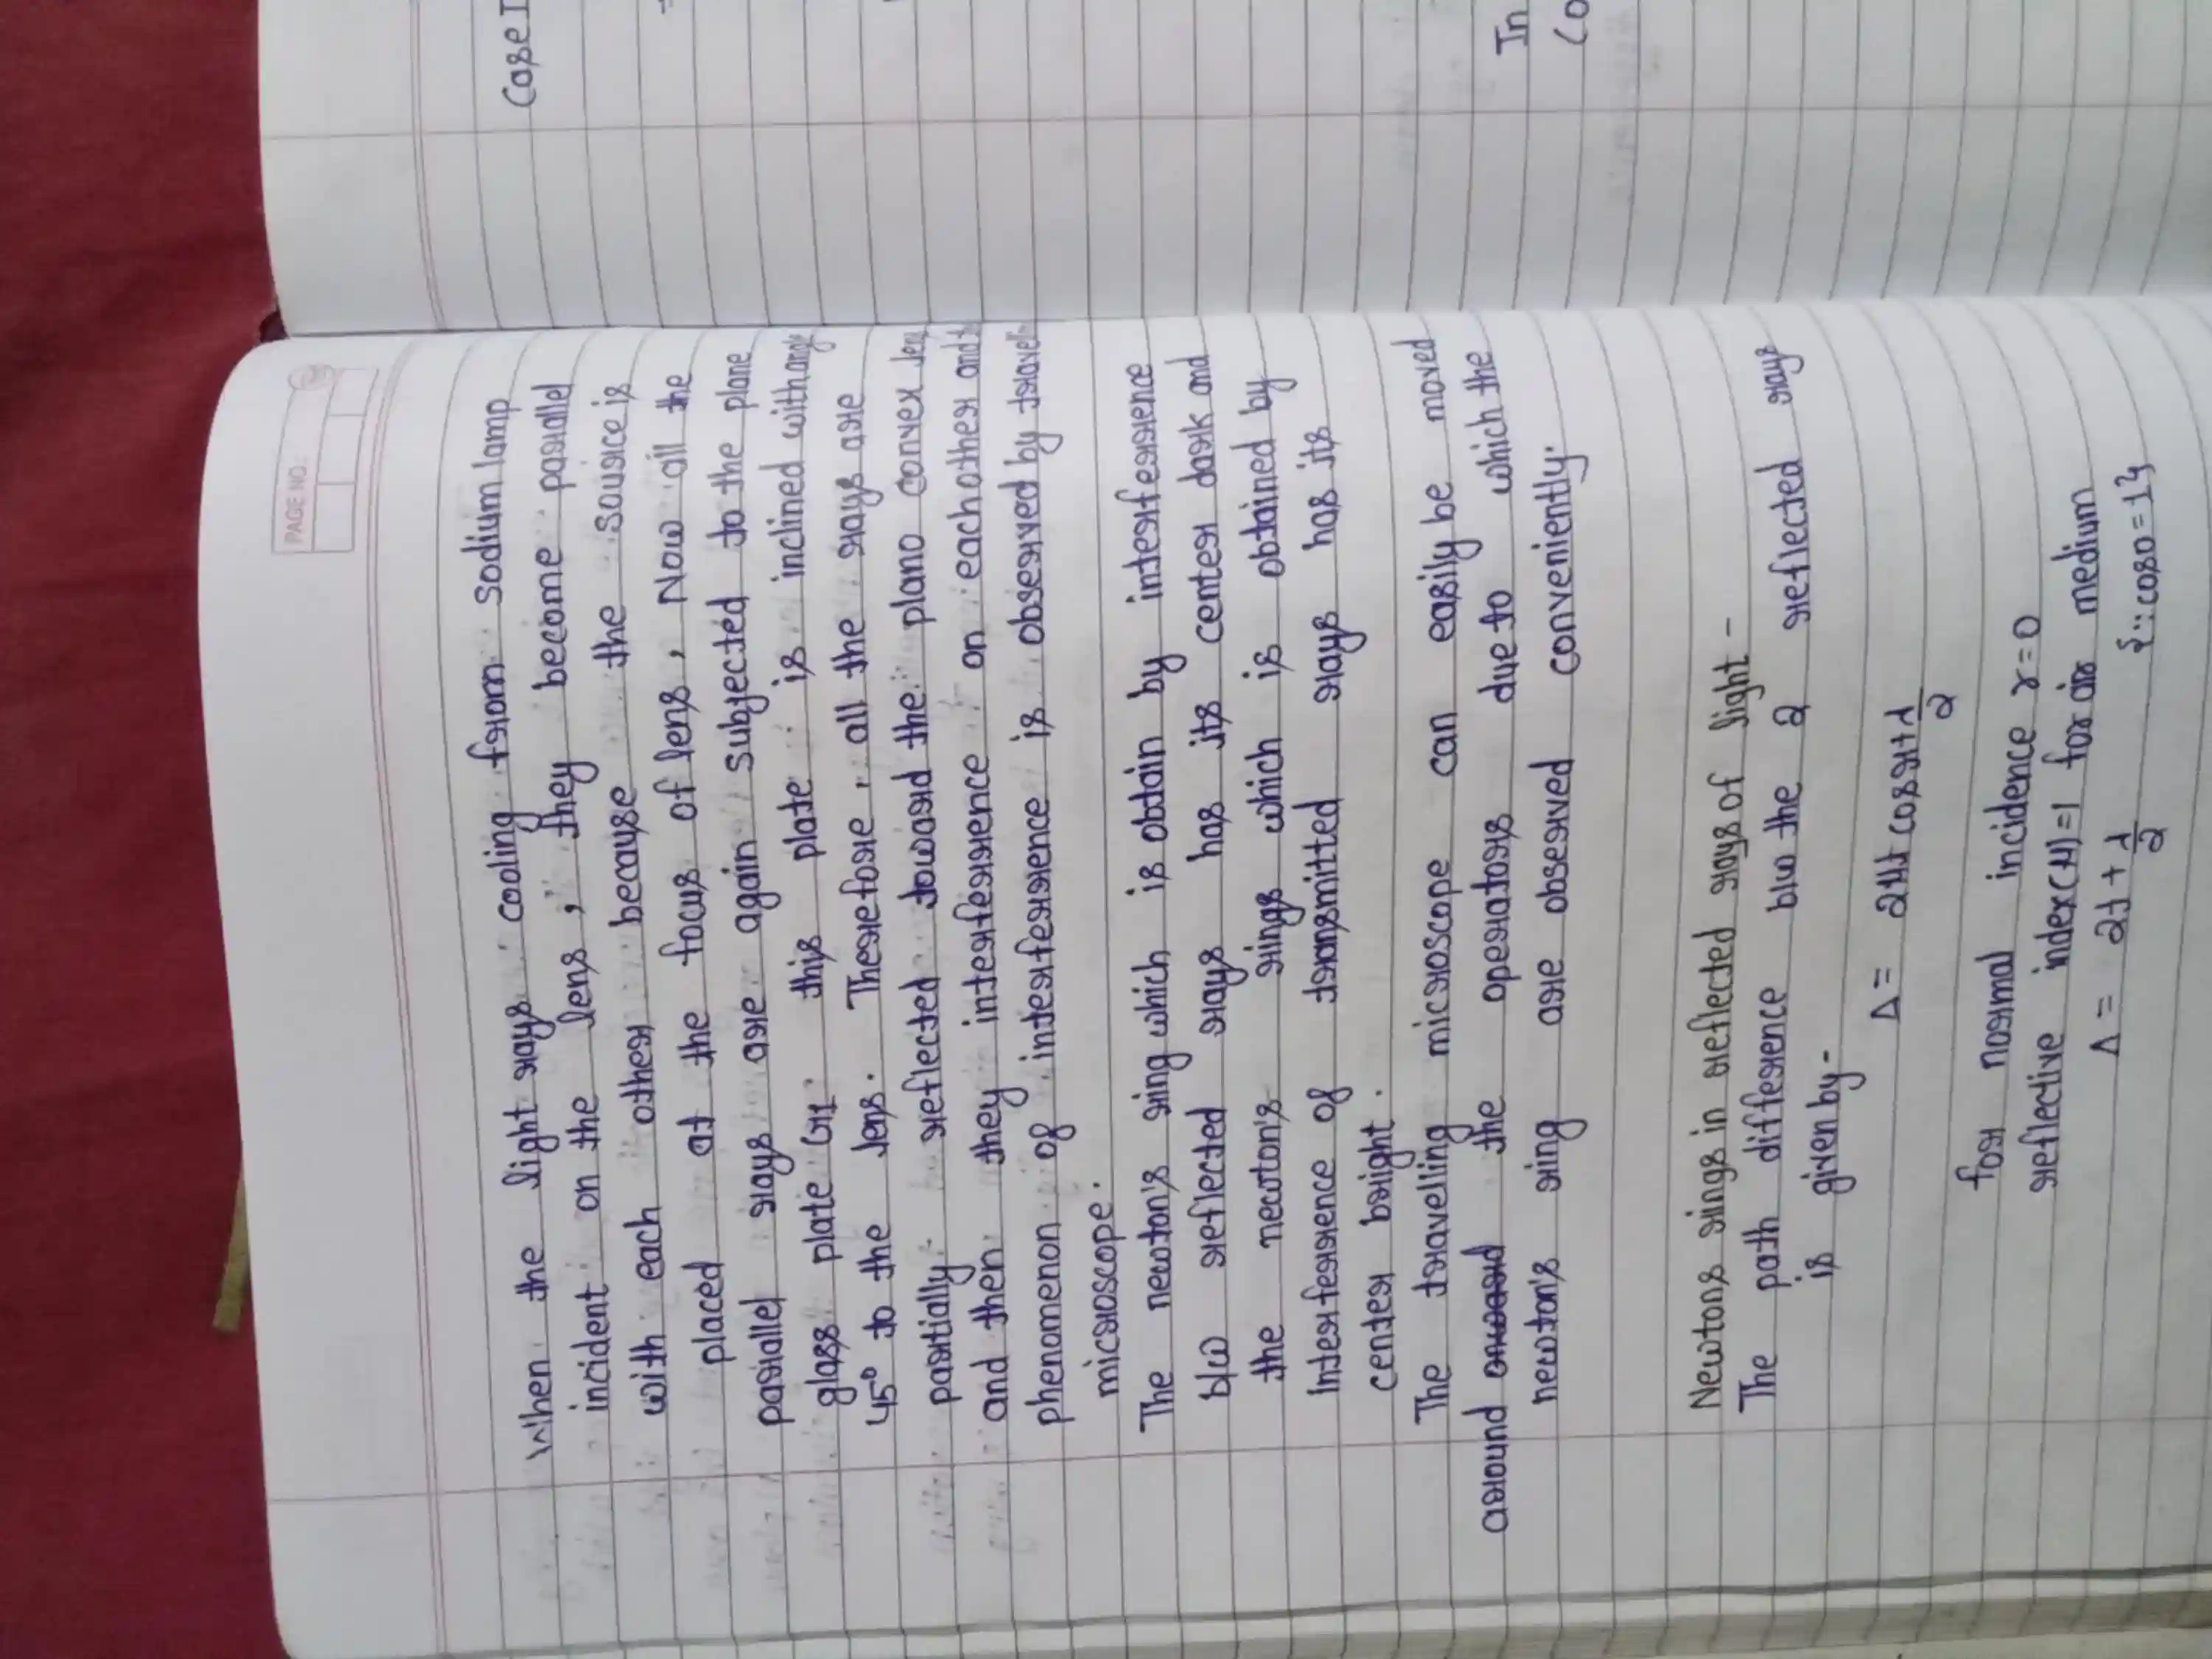 PAGE NO.:
When the light rays cooling from sodium lamp
incident on the lens, they become parallel
with each other because the source is
placed at the focus of lens, Now all the
parallel rays are again subjected to the plane
glass plate G1 this plate is inclined with angle
45° to the lens. Therefore, all the rays are
partially reflected toward the plano convex
and then they interference on each other and
phenomenon of interference is observed by
microscope.
The newton's ring which is obtain by interference
b/w reflected rays has its center dark and
the newton's rings which is obtained by
Interference of transmitted rays has its
center bright.
The travelling microscope can easily be moved
around the operators due to which the
newton's ring are observed conveniently.
Newtons rings in reflected rays of light -
The path difference b/w the 2 reflected rays
is given by -
Δ = 2μt cosr + λ/2
for normal incidence r=0
reflective index(μ)=1 for air medium
Δ = 2t + λ/2 {∵ cos0=1}
Case I
In
Co